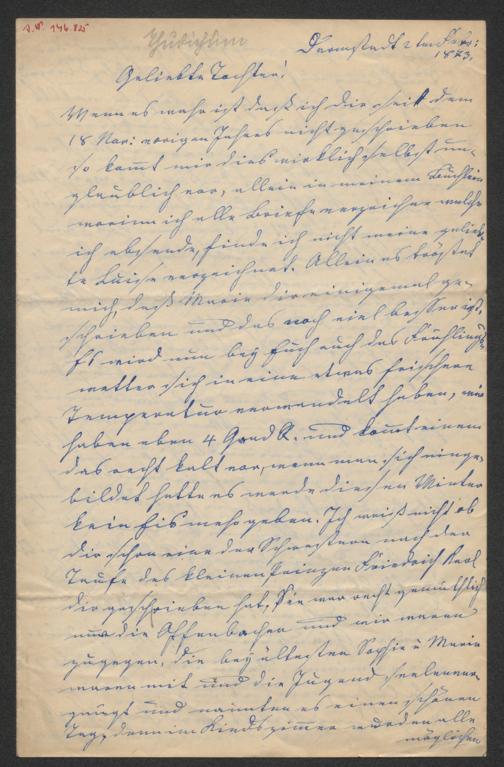 a. N°. 146.825
Thudichum
Darmstadt 2ten Febr:
1873.
Geliebte Tochter!
Wenn es wahr ist daß ich dir seit dem
18 Nov: vorigen Jahres nicht geschrieben
so kommt mir dies wirklich selbst un-
glaublich vor, allein in meinem Büchlein
worinn ich alle Briefe verzeichne welche
ich absende, finde ich nicht meine gelieb-
te Luise verzeichnet. Allein es tröstet
mich, daß Marie dir einigemal ge-
schrieben und das noch viel besser ist.
Es wird nun bey Euch auch das Frühlings-
wetter sich in eine etwas frischere
Temperatur verwandelt haben, wir
haben eben 4 Grad R. und kommt einem
das recht kalt vor, wenn man sich einge-
bildet hatte es werde diesen Winter
kein Eis mehr geben. Ich weiß nicht ob
dir schon eine der Schwestern nach der
Taufe des kleinen Prinzen Friedrich Karl
dir geschrieben hat, sie war recht gemüthlich
nur die Offenbacher und wir waren
zugegen, die bey ältesten Sophie u Marie
waren mit und die Jugend seelenver-
gnügt und nannten es einen schönen
Tag, denn im Kindszimmer wurden alle
möglichen